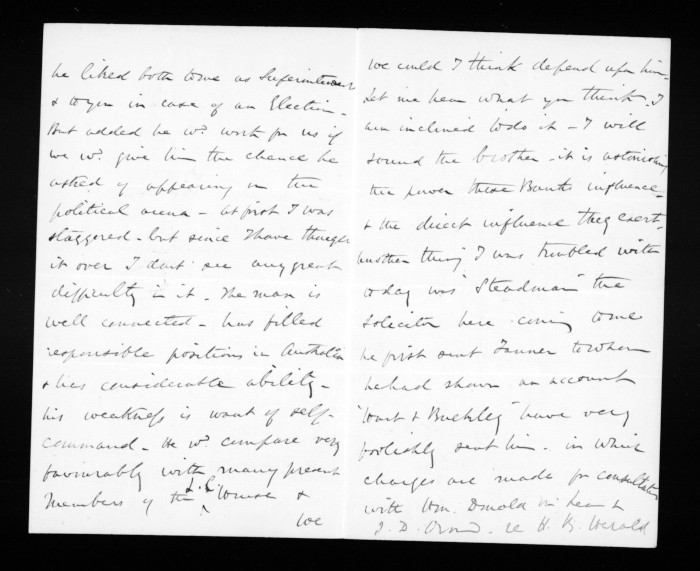 he liked both to me as Superintendent
& to you in case of an Election -
But added he wd. work for us if
we wd. give him the chance he
asked of appearing in the
political arena - at first I was
staggered - but since I have thought
it over I don't see any great
difficulty in it. The man is
well connected - has filled
responsible positions in Australia
& has considerable ability -
his weakness is want of self-
command - He wd. compare very
favourably with many present
Members of the L.C. House &
we
we could I think depend upon him -
Let me hear what you think. I
am inclined to do it - I will
sound the brother - it is astonishing
the power these Banks influence -
& the direct influence they exert -
Another thing I was troubled with
today was "Steadman" the
Solicitor here coming to me
he first sent Tanner to whom
he had shown an account
"Hart & Buckley" have very
foolishly sent him - in which
charges are made for consultation
with Wm. Donald McLean &
J. D. Ormond. re H. B. Herald